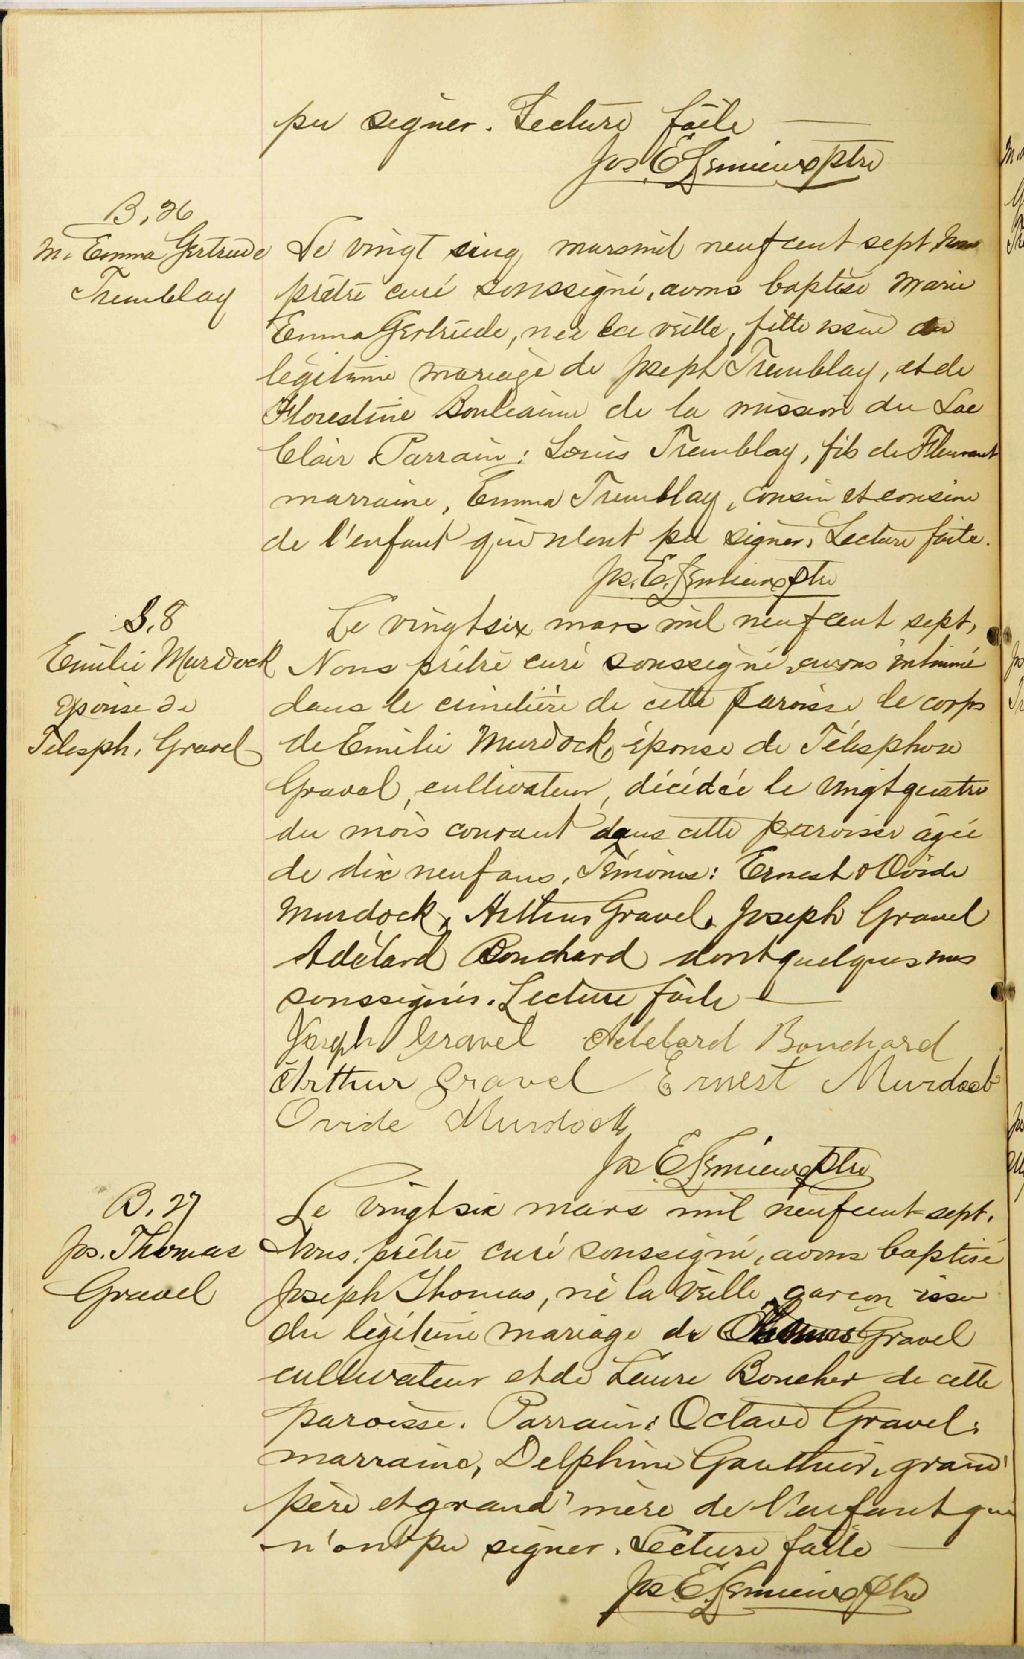 pu signer. Lecture faite
Jos. E. Lemieux ptre
B. 26
M. Emma Gertrude
Tremblay
Le vingt cinq mars mil neuf cent sept Nous
prêtre curé soussigné, avons baptisé Marie
Emma Gertrude, née la veille, fille issue du
légitime mariage de Joseph Tremblay, et de
Florestine Boulianne de la mission du Lac
Clair Parrain: Louis Tremblay, fils de
marraine, Emma Tremblay, cousin et cousine
de l'enfant qui n'ont pu signer. Lecture faite.
Jos. E. Lemieux ptre
S. 8
Emilie Murdock
épouse de
Télesph. Gravel
Le vingt six mars mil neuf cent sept,
Nous prêtre curé soussigné, avons inhumé
dans le cimetière de cette paroisse le corps
de Emilie Murdock, épouse de Télesphore
Gravel, cultivateur, décédée le vingt quatre
du mois courant dans cette paroisse âgée
de dix neuf ans. Témoins: Ernest & Ovide
Murdock, Arthur Gravel, Joseph Gravel
Adélard Bouchard dont quelques uns
soussignés. Lecture faite
Joseph Gravel Adelard Bouchard
Arthur Gravel Ernest Murdock
Ovide Murdock
Jos E. Lemieux ptre
B. 27
Jos. Thomas
Gravel
Le vingt six mars mil neuf cent sept.
Nous, prêtre curé soussigné, avons baptisé
Joseph Thomas, né la veille, garçon issu
du légitime mariage de Thomas Gravel
cultivateur et de Laure Boucher de cette
paroisse. Parrain: Octave Gravel;
marraine, Delphine Gauthier, grand'
père et grand'mère de l'enfant qui
n'ont pu signer. Lecture faite
Jos. E. Lemieux ptre